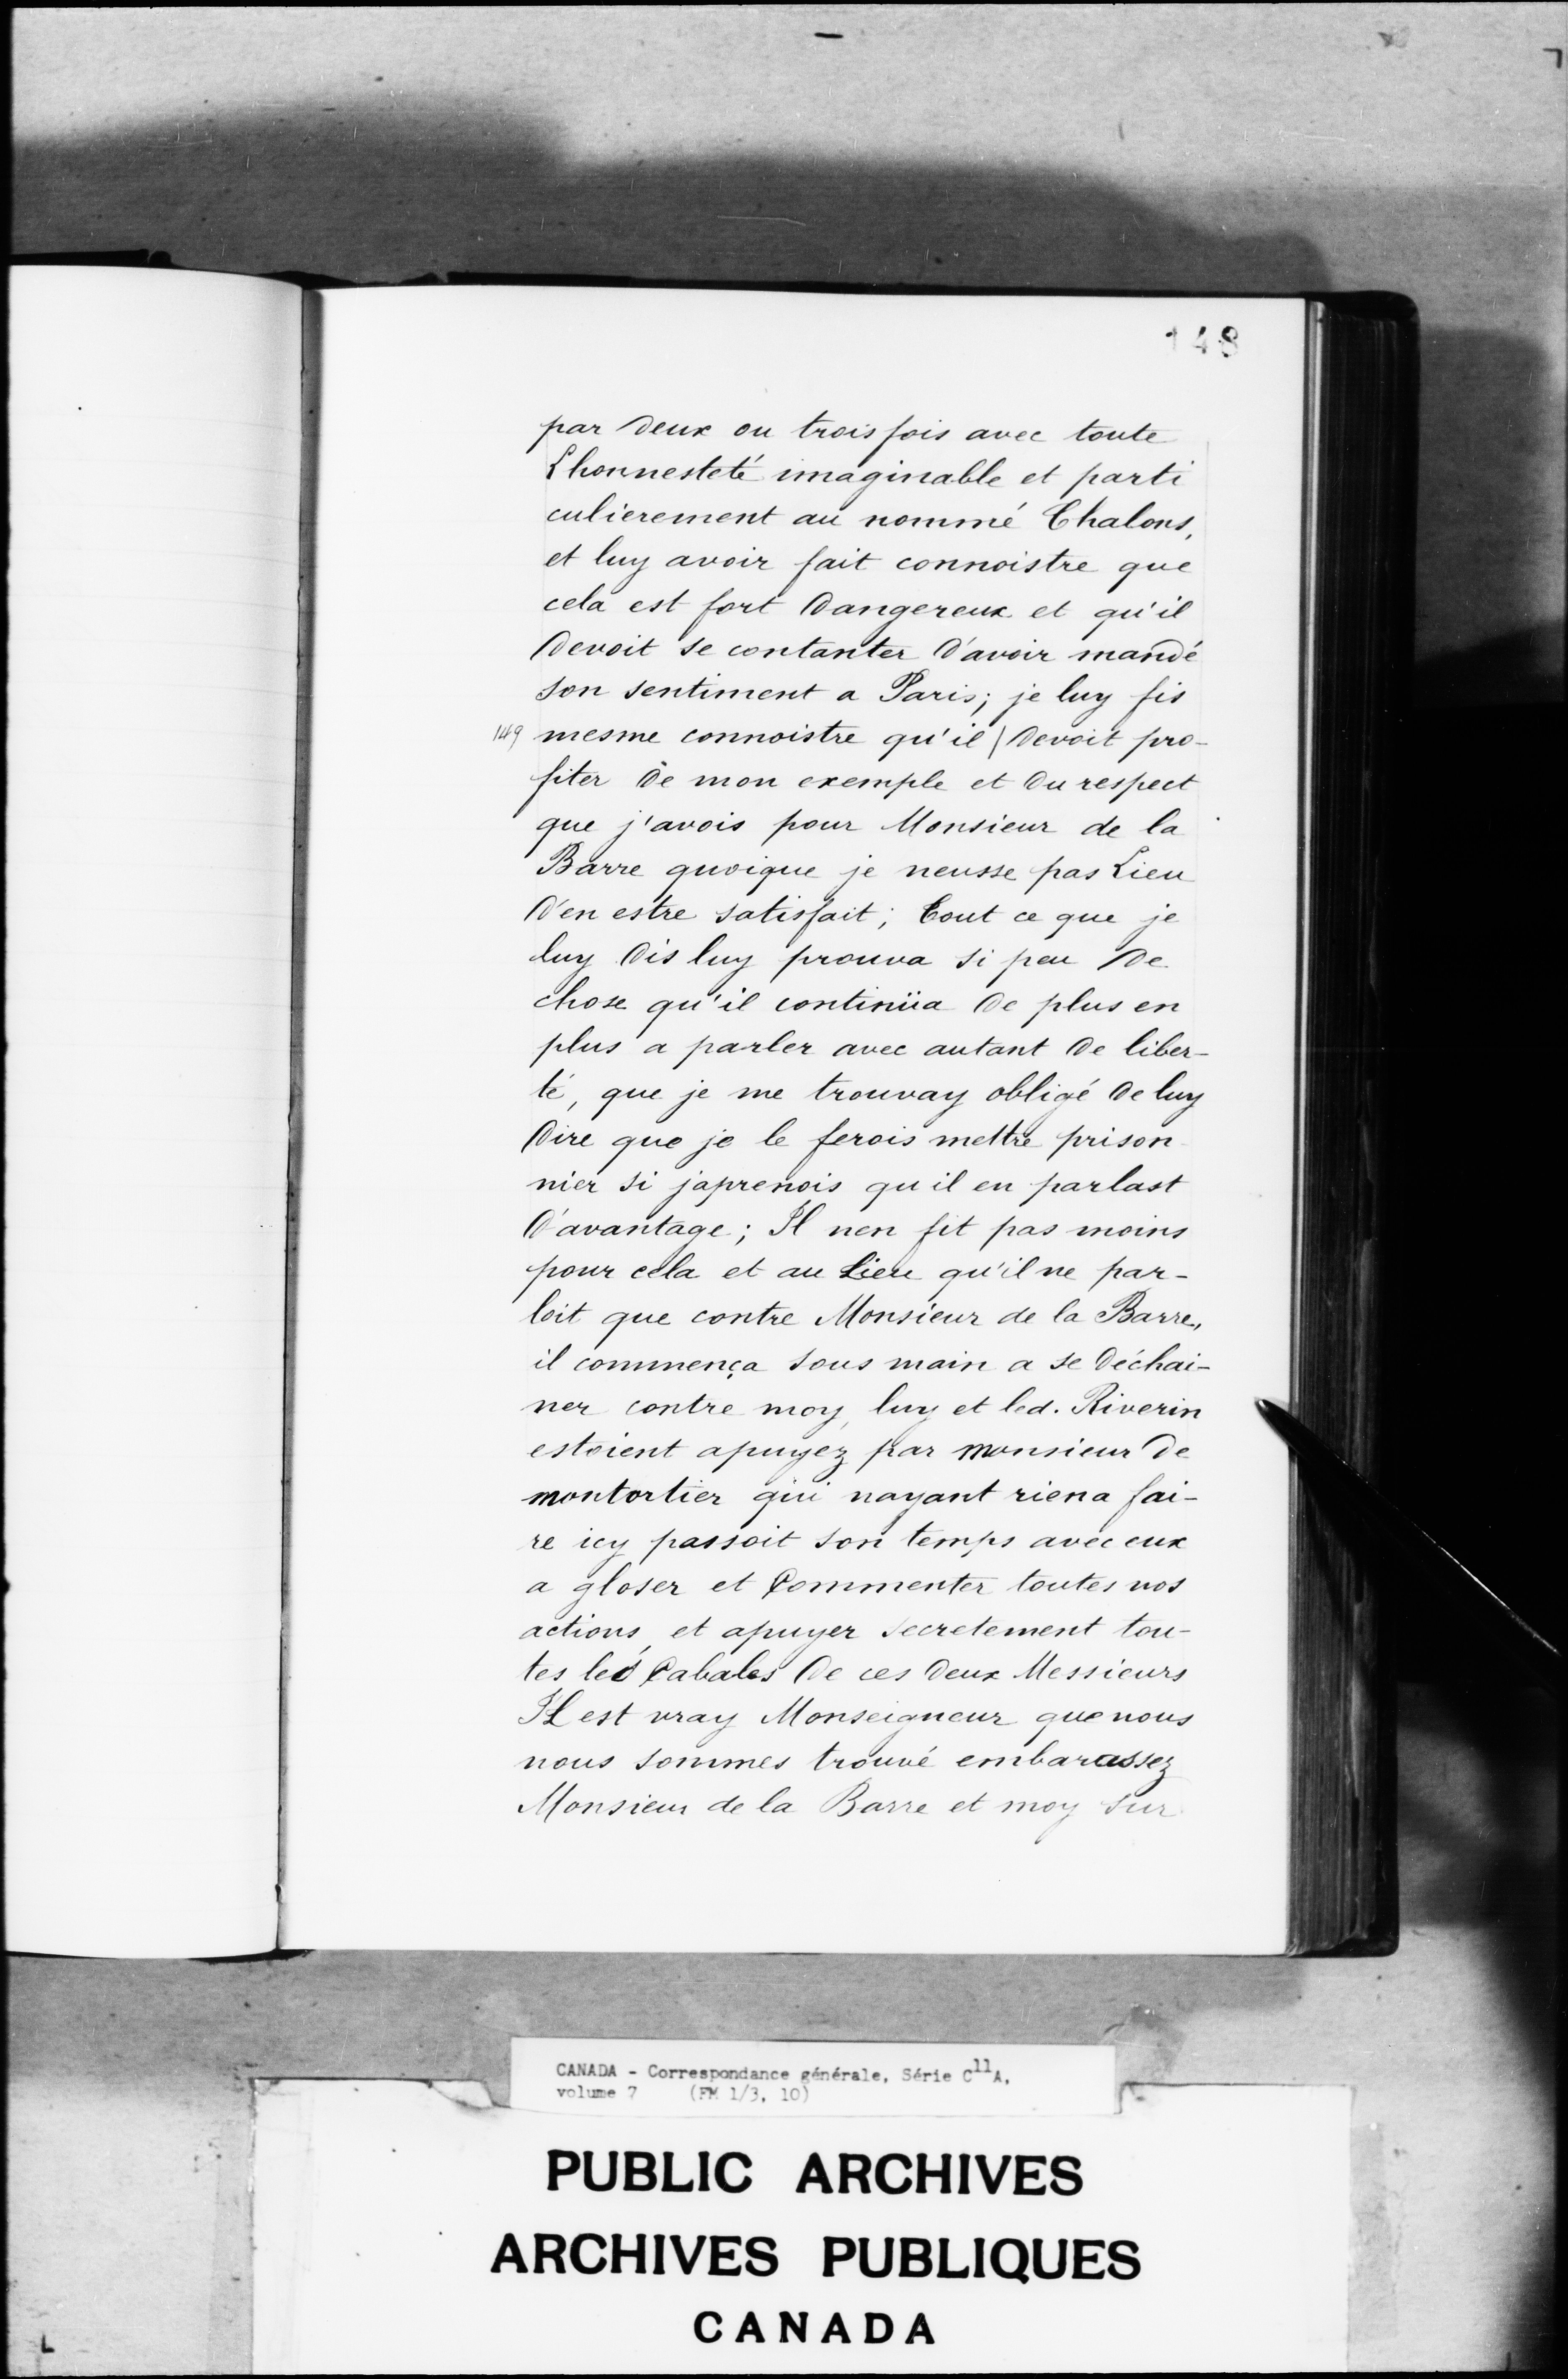 148
par deux ou trois fois avec toute
Lhonnesteté imaginable et parti
culierement au nommé Chalons,
et luy avoir fait connoistre que
cela est fort dangereux et qu'il
devoit se contanter d'avoir mandé
son sentiment a Paris; je luy fis
149 mesme connoistre qu'il | devoit pro-
fiter de mon exemple et du respect
que j'avois pour Monsieur de la
Barre quoique je neusse pas Lieu
d'en estre satisfait; tout ce que je
luy dis luy prouva si peu de
chose qu'il continüa de plus en
plus a parler avec autant de liber-
té, que je me trouvay obligé de luy
dire que je le ferois mettre prison
nier si japrenois qu il en parlast
d'avantage; Il nen fit pas moins
pour cela et au Lieu qu'il ne par-
loit que contre Monsieur de la Barre,
il commença sous main a se déchai-
ner contre moy, luy et led. Riverin
estoient apuyez par monsieur de
montortier qui nayant rien a fai-
re icy passoit son temps avec eux
a gloser et Commenter toutes nos
actions, et apuyer secretement tou-
tes les Cabales de ces deux Messieurs
IL est vray Monseigneur que nous
nous sommes trouvé embarassez
Monsieur de la Barre et moy sur
CANADA - Correspondance générale, Série C11A,
volume 7 (FM 1/3, 10)
PUBLIC ARCHIVES
ARCHIVES PUBLIQUES
CANADA